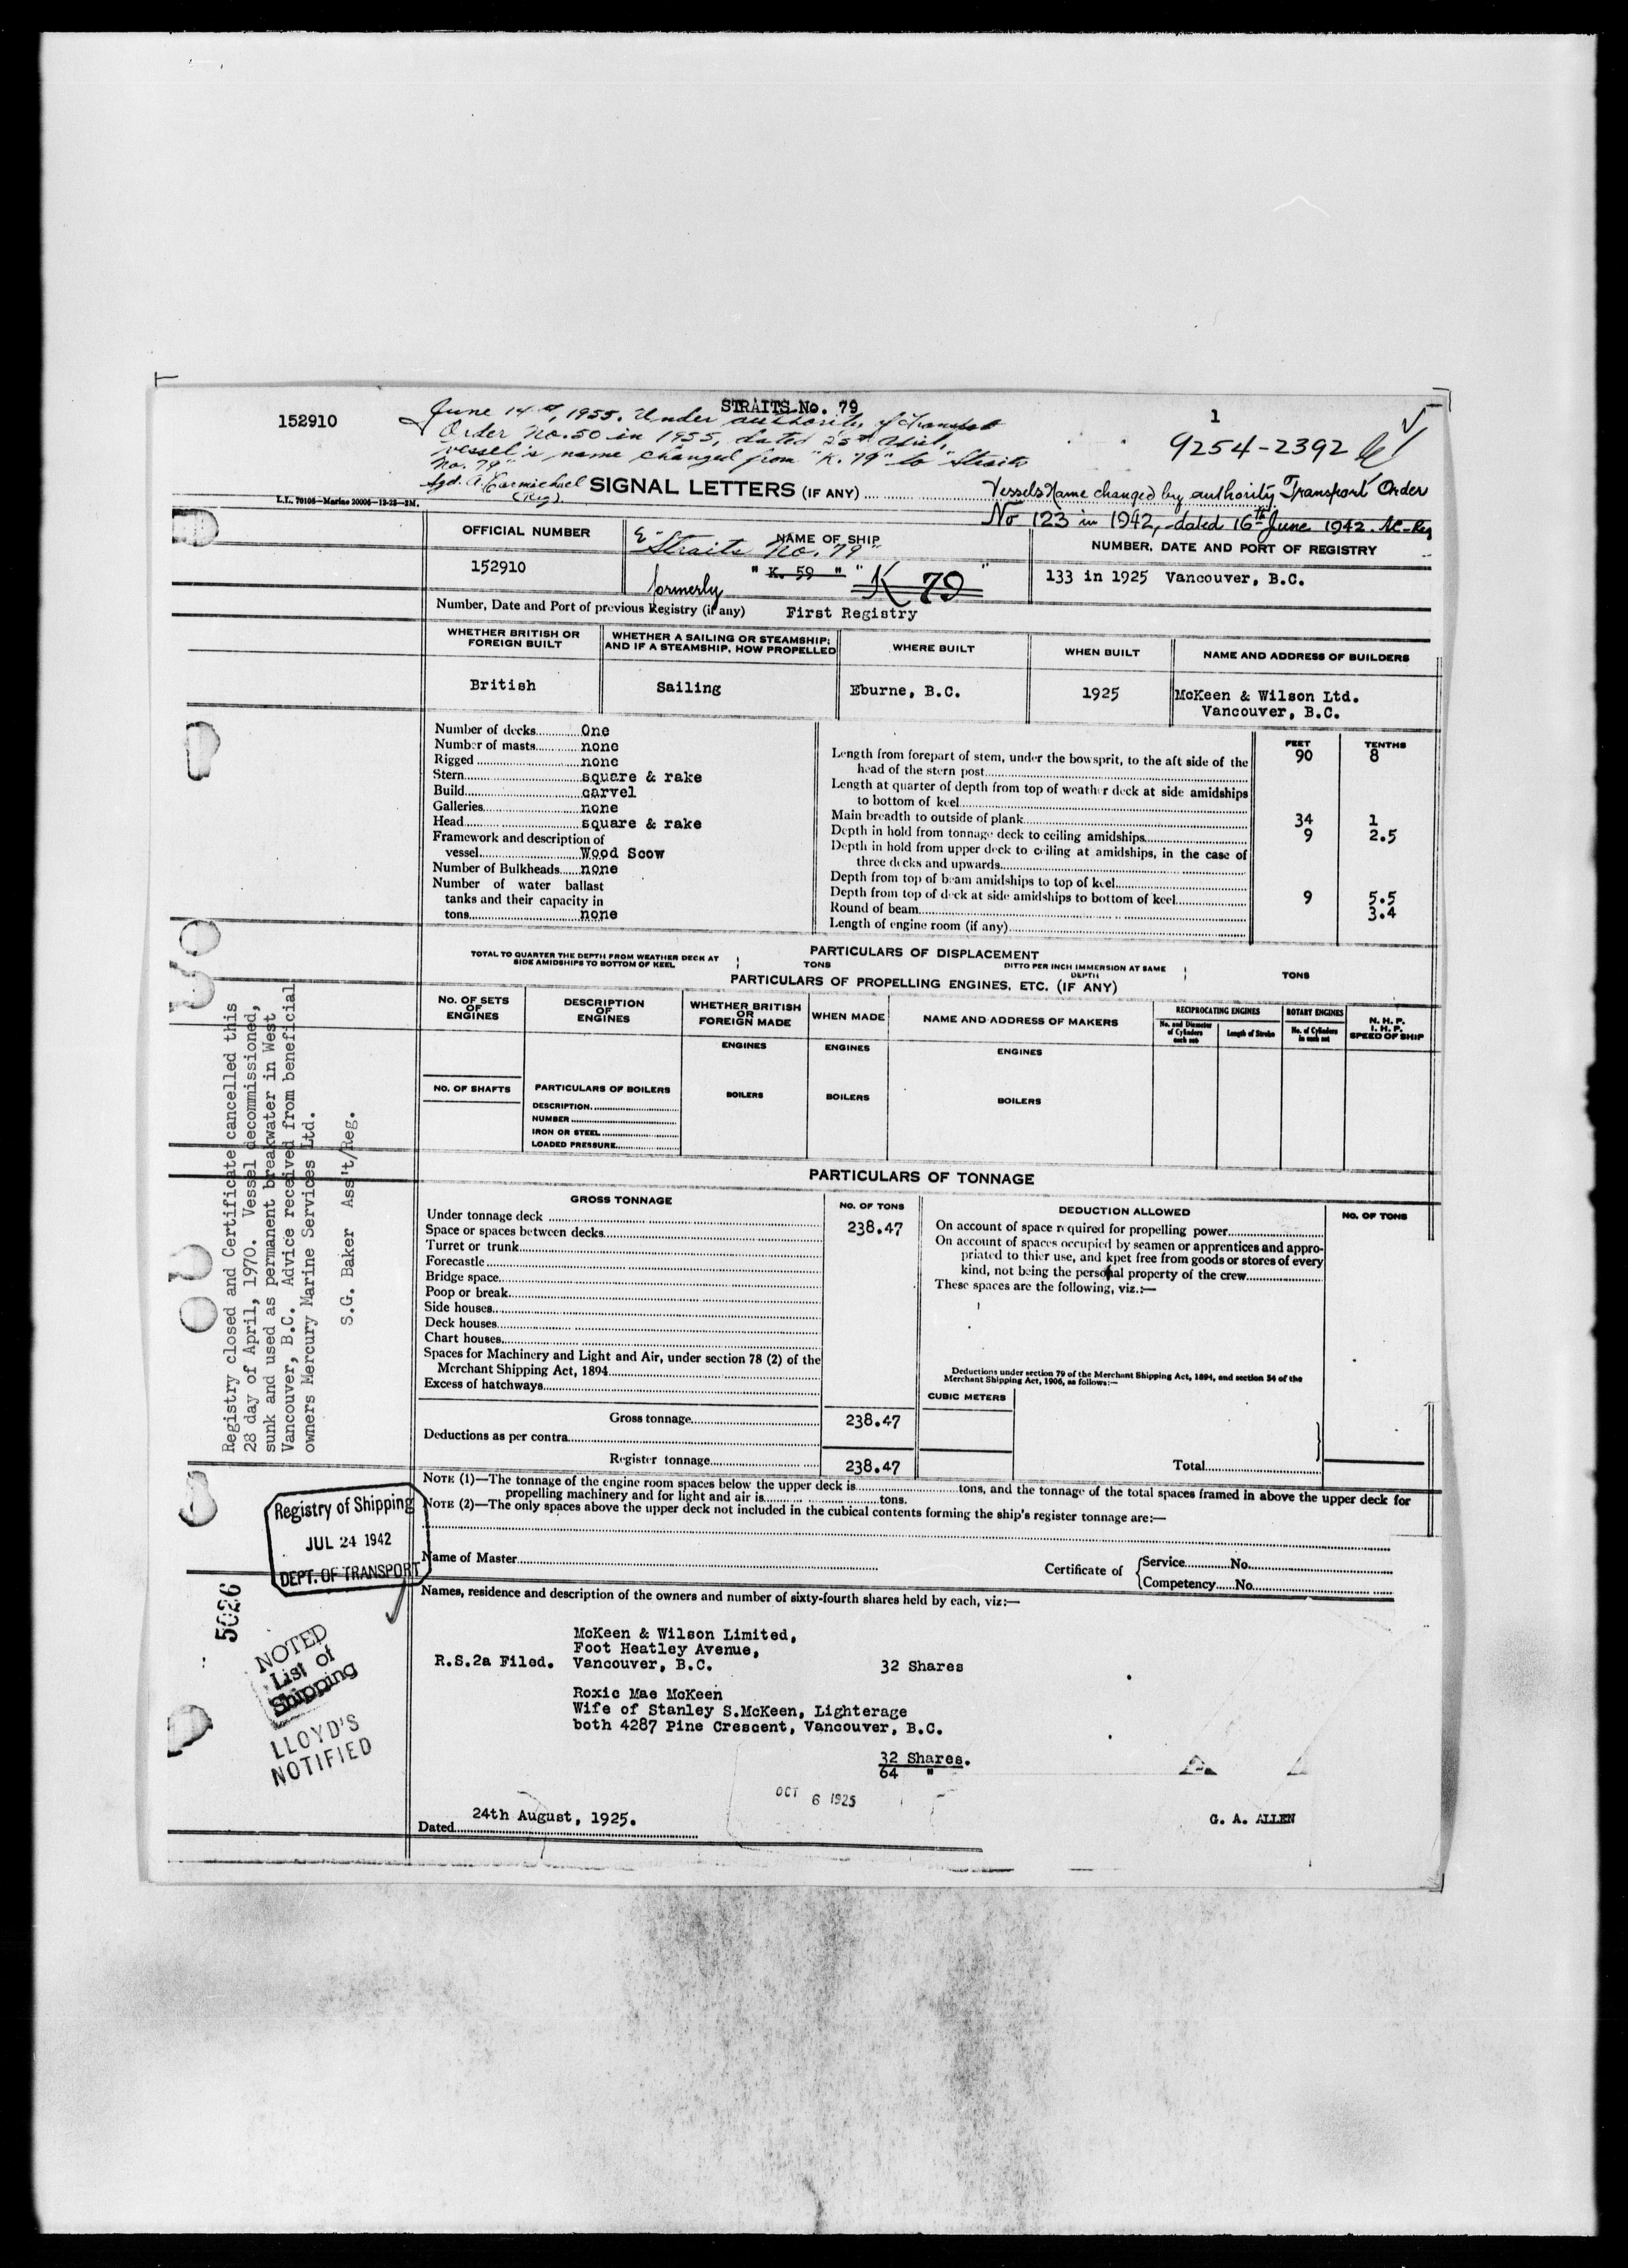 152910
STRAITS No. 79
1
9254-2392
June 14th, 1955. Under authority of Transport
Order No. 50 in 1955, dated 25th April,
vessel's name changed from "K. 79" to "Straits
No. 79"
Sgd. A. Carmichael
(Reg).
L.L. 70105—Marine 30006—12-23—2M.
SIGNAL LETTERS (IF ANY)
Vessels Name changed by authority Transport Order
No 123 in 1942, dated 16th June 1942.
OFFICIAL NUMBER
152910
NAME OF SHIP
"Straits No. 79"
formerly " K. 59 " " K 79 "
NUMBER, DATE AND PORT OF REGISTRY
133 in 1925 Vancouver, B.C.
Number, Date and Port of previous Registry (if any) First Registry
WHETHER BRITISH OR FOREIGN BUILT
British
WHETHER A SAILING OR STEAMSHIP; AND IF A STEAMSHIP, HOW PROPELLED
Sailing
WHERE BUILT
Eburne, B.C.
WHEN BUILT
1925
NAME AND ADDRESS OF BUILDERS
McKeen & Wilson Ltd.
Vancouver, B.C.
Number of decks One
Number of masts none
Rigged none
Stern square & rake
Build carvel
Galleries none
Head square & rake
Framework and description of
vessel Wood Scow
Number of Bulkheads none
Number of water ballast
tanks and their capacity in
tons none
FEET TENTHS
Length from forepart of stem, under the bowsprit, to the aft side of the
head of the stern post 90 8
Length at quarter of depth from top of weather deck at side amidships
to bottom of keel
Main breadth to outside of plank 34 1
Depth in hold from tonnage deck to ceiling amidships 9 2.5
Depth in hold from upper deck to ceiling at amidships, in the case of
three decks and upwards
Depth from top of beam amidships to top of keel
Depth from top of deck at side amidships to bottom of keel 9 5.5
Round of beam 3.4
Length of engine room (if any)
PARTICULARS OF DISPLACEMENT
TOTAL TO QUARTER THE DEPTH FROM WEATHER DECK AT SIDE AMIDSHIPS TO BOTTOM OF KEEL
TONS
DITTO PER INCH IMMERSION AT SAME DEPTH
TONS
PARTICULARS OF PROPELLING ENGINES, ETC. (IF ANY)
No. OF SETS OF ENGINES
DESCRIPTION OF ENGINES
WHETHER BRITISH OR FOREIGN MADE
WHEN MADE
NAME AND ADDRESS OF MAKERS
RECIPROCATING ENGINES
No. and Diameter of Cylinders each set
Length of Stroke
ROTARY ENGINES
No. of Cylinders in each set
N. H. P.
I. H. P.
SPEED OF SHIP
ENGINES
ENGINES
ENGINES
NO. OF SHAFTS
PARTICULARS OF BOILERS
DESCRIPTION
NUMBER
IRON OR STEEL
LOADED PRESSURE
BOILERS
BOILERS
BOILERS
PARTICULARS OF TONNAGE
GROSS TONNAGE
NO. OF TONS
Under tonnage deck 238.47
Space or spaces between decks
Turret or trunk
Forecastle
Bridge space
Poop or break
Side houses
Deck houses
Chart houses
Spaces for Machinery and Light and Air, under section 78 (2) of the
Merchant Shipping Act, 1894
Excess of hatchways
Gross tonnage 238.47
Deductions as per contra
Register tonnage 238.47
DEDUCTION ALLOWED
NO. OF TONS
On account of space required for propelling power
On account of spaces occupied by seamen or apprentices and appro-
priated to thier use, and kpet free from goods or stores of every
kind, not being the personal property of the crew
These spaces are the following, viz.:—
Deductions under section 79 of the Merchant Shipping Act, 1894, and section 54 of the
Merchant Shipping Act, 1906, as follows:—
CUBIC METERS
Total
NOTE (1)—The tonnage of the engine room spaces below the upper deck is tons, and the tonnage of the total spaces framed in above the upper deck for
propelling machinery and for light and air is tons.
NOTE (2)—The only spaces above the upper deck not included in the cubical contents forming the ship's register tonnage are:—
Name of Master
Certificate of
Service No.
Competency No.
Names, residence and description of the owners and number of sixty-fourth shares held by each, viz:—
McKeen & Wilson Limited,
Foot Heatley Avenue,
R.S.2a Filed. Vancouver, B.C. 32 Shares
Roxie Mae McKeen
Wife of Stanley S.McKeen, Lighterage
both 4287 Pine Crescent, Vancouver, B.C.
32 Shares.
64 "
OCT 6 1925
24th August, 1925.
Dated
G. A. ALLEN
Registry closed and Certificate cancelled this
28 day of April, 1970. Vessel decommissioned,
sunk and used as permanent breakwater in West
Vancouver, B.C. Advice received from beneficial
owners Mercury Marine Services Ltd.
S.G. Baker Ass't/Reg.
Registry of Shipping
JUL 24 1942
DEPT. OF TRANSPORT
5026
NOTED
List of
Shipping
LLOYD'S
NOTIFIED